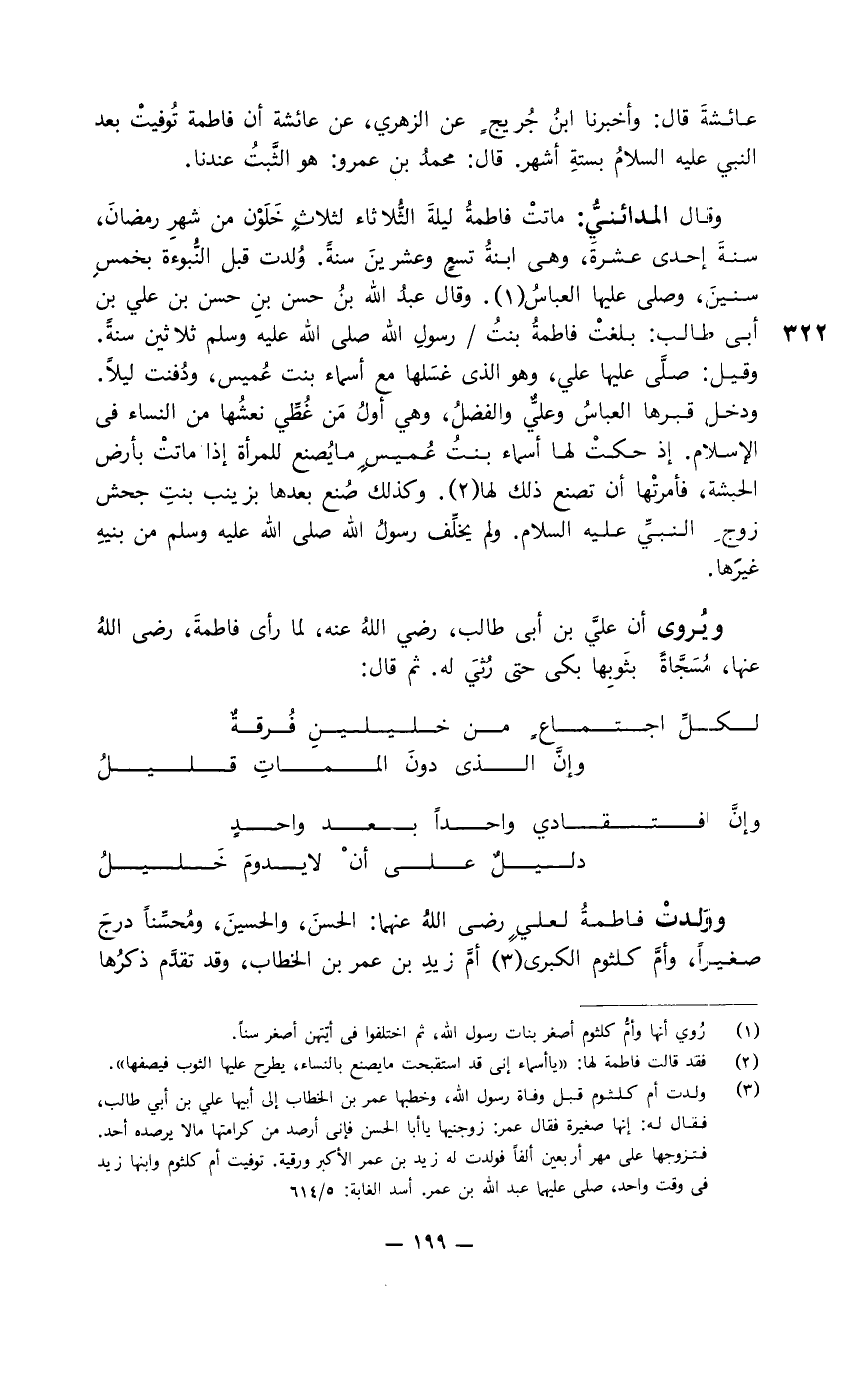 عائشةَ قال: وأخبرنا ابنُ جُريجٍ عن الزهري، عن عائشة أن فاطمة تُوفيتْ بعد
النبي عليه السلامُ بستةِ أشهر. قال: محمدُ بن عمرو: هو الثَّبتُ عندنا.
وقال المدائنيُّ: ماتتْ فاطمةُ ليلةَ الثُّلاثاء لثلاثٍ خَلَوْن من شهرِ رمضانَ،
سنةَ إحدى عشرةَ، وهى ابنةُ تسعٍ وعشرينَ سنةً. وُلدت قبل النُّبوءة بخمسِ
سنينَ، وصلى عليها العباسُ(١). وقال عبدُ الله بنُ حسن بنِ حسن بن علي بن
٣٢٢ أبى طالب: بلغتْ فاطمةُ بنتُ / رسولِ الله صلى الله عليه وسلم ثلاثين سنةً.
وقيل: صلَّى عليها علي، وهو الذى غسَلها مع أسماء بنت عُميس، ودُفنت ليلاً.
ودخل قبرها العباسُ وعليٌّ والفضلُ، وهي أولُ مَن غُطِّي نعشُها من النساء فى
الإسلام. إذ حكتْ لها أسماء بنتُ عُميسٍ مايُصنع للمرأة إذا ماتتْ بأرض
الحبشة، فأمرتْها أن تصنع ذلك لها(٢). وكذلك صُنع بعدها بزينب بنتِ جحش
زوجِ النبيِّ عليه السلام. ولم يخلِّف رسولُ الله صلى الله عليه وسلم من بنيهِ
غيرَها.
ويُروى أن عليَّ بن أبى طالب، رضي اللهُ عنه، لما رأى فاطمةَ، رضى اللهُ
عنها، مُسَجَّاةً بثَوبِها بكى حتى رُثيَ له. ثم قال:
لكلِّ اجتماعٍ من خليلينِ فُرقةٌ
وإنَّ الذى دونَ المماتِ قليلُ
وإنَّ افتقادي واحداً بعد واحدٍ
دليلٌ على أنْ لايدومَ خَليلُ
وولدتْ فاطمةُ لعليٍ رضى اللهُ عنهما: الحسنَ، والحسينَ، ومُحسِّناً درجَ
صغيراً، وأمَّ كلثوم الكبرى(٣) أمَّ زيدِ بن عمر بن الخطاب، وقد تقدَّم ذكرُها
(١) رُوي أنها وأمُّ كلثوم أصغر بنات رسول الله، ثم اختلفوا فى أيّتهن أصغر سناً.
(٢) فقد قالت فاطمة لها: «ياأسماء إنى قد استقبحت مايصنع بالنساء، يطرح عليها الثوب فيصفها».
(٣) ولدت أم كلثوم قبل وفاة رسول الله، وخطبها عمر بن الخطاب إلى أبيها علي بن أبي طالب،
فقال له: إنها صغيرة فقال عمر: زوجنيها ياأبا الحسن فإنى أرصد من كرامتها مالا يرصده أحد.
فتزوجها على مهر أربعين ألفاً فولدت له زيد بن عمر الأكبر ورقية. توفيت أم كلثوم وابنها زيد
فى وقت واحد، صلى عليهما عبد الله بن عمر. أسد الغابة: ٦١٤/٥
— ١٩٩ —